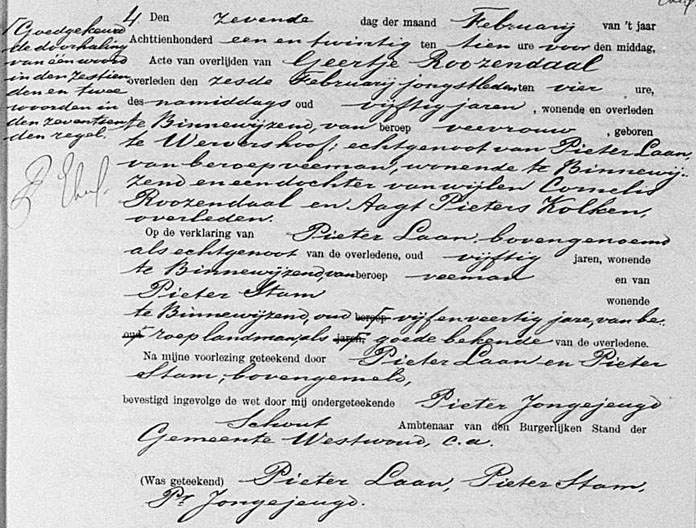 Goedgekeurd
de doorhaling
van één woord
in den zestien
den en twee
woorden in
den zeventien
den regel.
4 Den zevende dag der maand Februarij van 't jaar
Achttienhonderd een en twintig ten tien ure voor den middag,
Acte van overlijden van Geertje Roozendaal
overleden den zesde Februarij jongstleden ten vier ure,
des namiddags oud vijftig jaren, wonende en overleden
te Binnewijzend, van beroep veevrouw, geboren
te Wervershoof; echtgenoot van Pieter Laan,
van beroep veeman, wonende te Binnewij-
zend en een dochter van wijlen Cornelis
Roozendaal en Aagt Pieters Kolken,
overleden.
Op de verklaring van Pieter Laan, bovengenoemd
als echtgenoot van de overledene, oud vijftig jaren, wonende
te Binnewijzend, van beroep veeman en van
Pieter Stam wonende
te Binnewijzend, oud beroep vijf en veertig jare, van be-
oud roep landman, als jaren, goede bekende van de overledene.
Na mijne voorlezing geteekend door Pieter Laan en Pieter
Stam, bovengemeld,
bevestigd ingevolge de wet door mij ondergeteekende Pieter Jongejeugd
Schout Ambtenaar van den Burgerlijken Stand der
Gemeente Westwoud, c.a.
(Was geteekend) Pieter Laan, Pieter Stam,
Pr Jongejeugd.